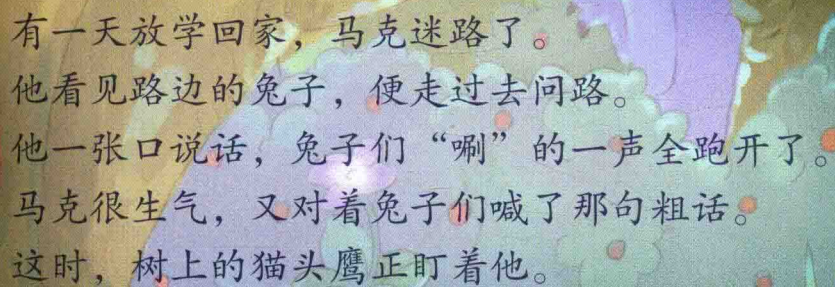 有一天放学回家，马克迷路了。
他看见路边的兔子，便走过去问路。
他一张口说话，兔子们“唰”的一声全跑开了。
马克很生气，又对着兔子们喊了那句粗话。
这时，树上的猫头鹰正盯着他。